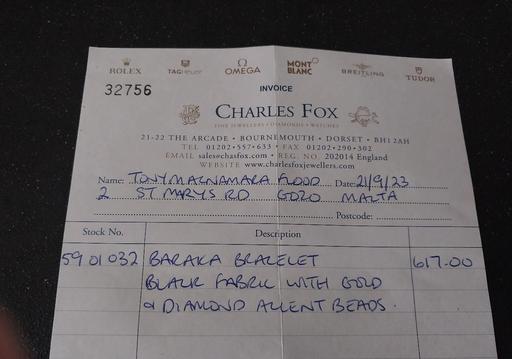 ROLEX TAGHeuer OMEGA MONT BLANC BREITLING TUDOR
32756
INVOICE
CHARLES FOX
FINE JEWELLERS • DIAMONDS • WATCHES
21-22 THE ARCADE • BOURNEMOUTH • DORSET • BH1 2AH
TEL 01202•557•633 • FAX 01202•290•302
EMAIL sales@chasfox.com • REG. NO. 202014 England
WEBSITE www.charlesfoxjewellers.com
Name: TONY MACNAMARA FLOOD Date: 21/9/23
2 ST MARYS RD GOZO MALTA
Postcode:
Stock No. Description
5901032 BARAKA BRACELET 617-00
BLACK FABRIC WITH GOLD
& DIAMOND ACCENT BEADS.